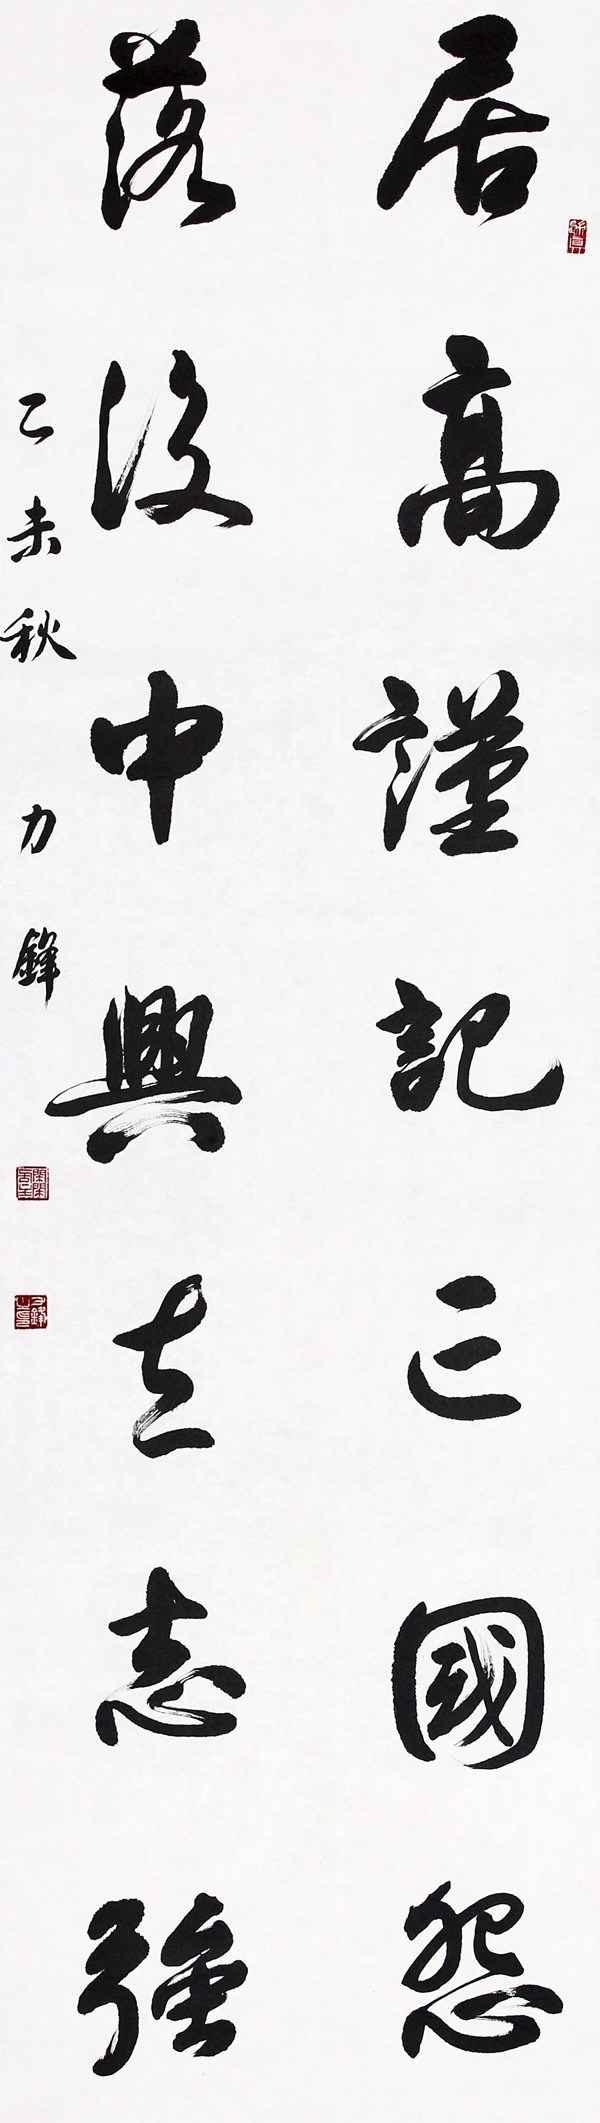 居高謹記亡國怨
落後中興立志強
乙未秋 力鋒